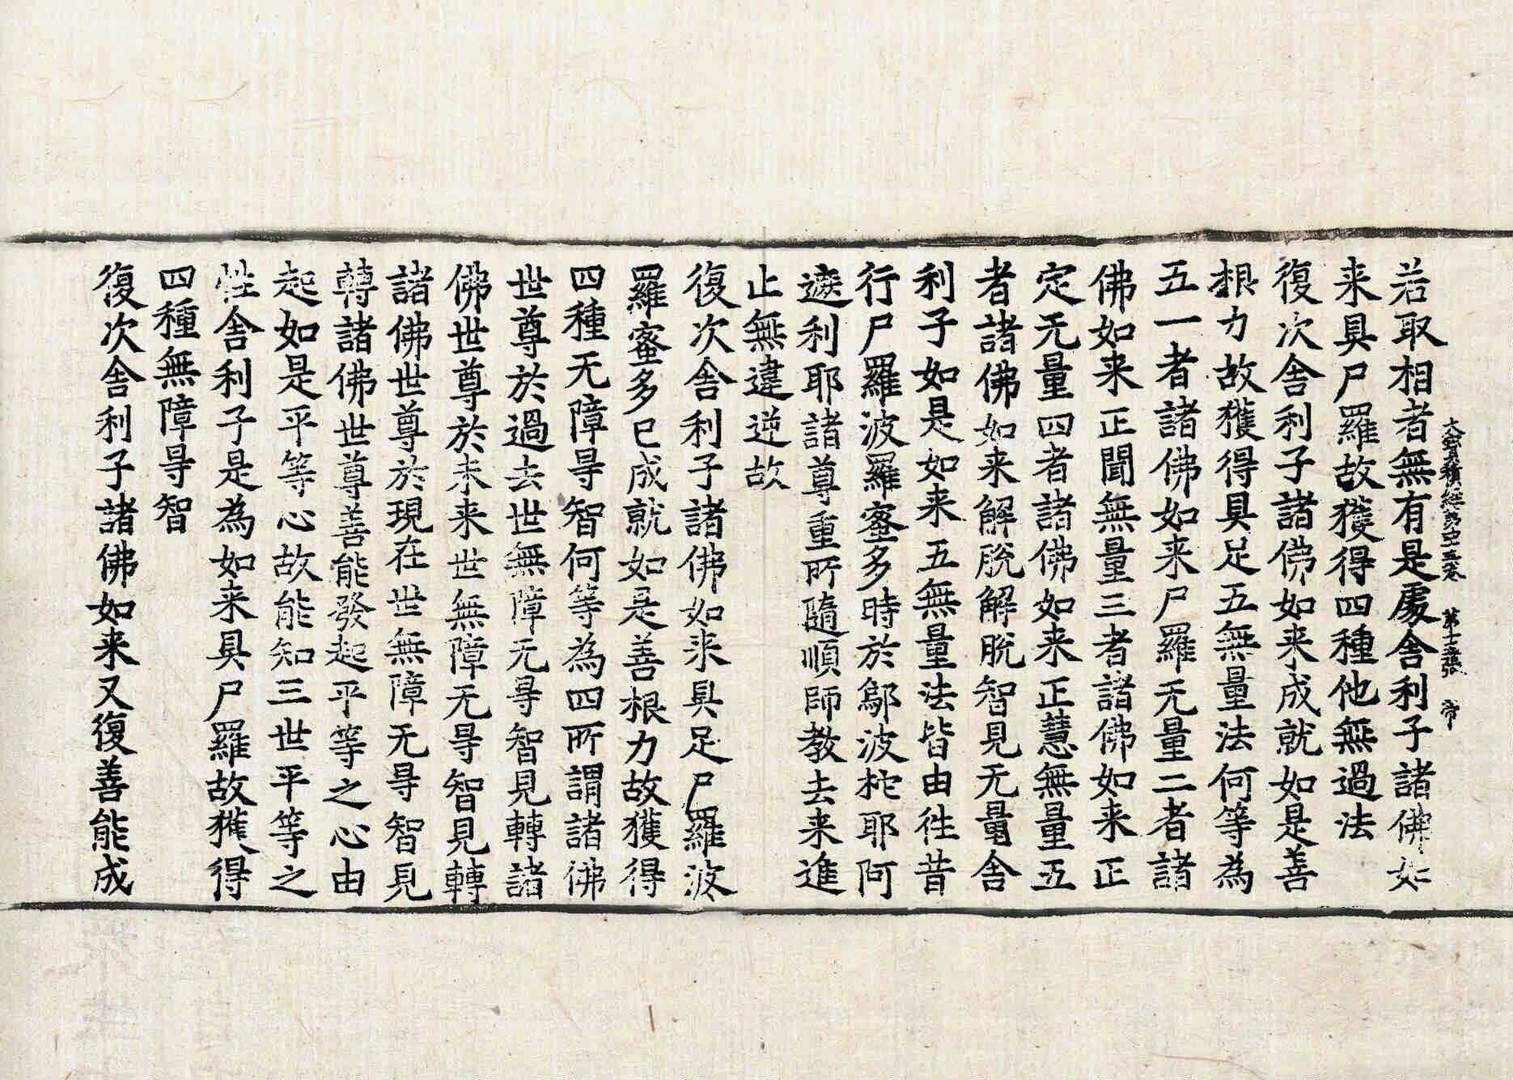 大寶積經第四十二卷 第十五張 帝
若取相者無有是處舍利子諸佛如
来具尸羅故獲得四種他無過法
復次舍利子諸佛如来成就如是善
根力故獲得具足五無量法何等為
五一者諸佛如来尸羅无量二者諸
佛如来正聞無量三者諸佛如来正
定无量四者諸佛如来正慧無量五
者諸佛如来解脫解脫智見无量舍
利子如是如来五無量法皆由徃昔
行尸羅波羅蜜多時於鄔波柁耶阿
遮利耶諸尊重所隨順師教去来進
止無違逆故
復次舍利子諸佛如来具足尸羅波
羅蜜多已成就如是善根力故獲得
四種无障㝵智何等為四所謂諸佛
世尊於過去世無障无㝵智見轉諸
佛世尊於未来世無障无㝵智見轉
諸佛世尊於現在世無障无㝵智見
轉諸佛世尊善能發起平等之心由
起如是平等心故能知三世平等之
性舍利子是為如来具尸羅故獲得
四種無障㝵智
復次舍利子諸佛如来又復善能成